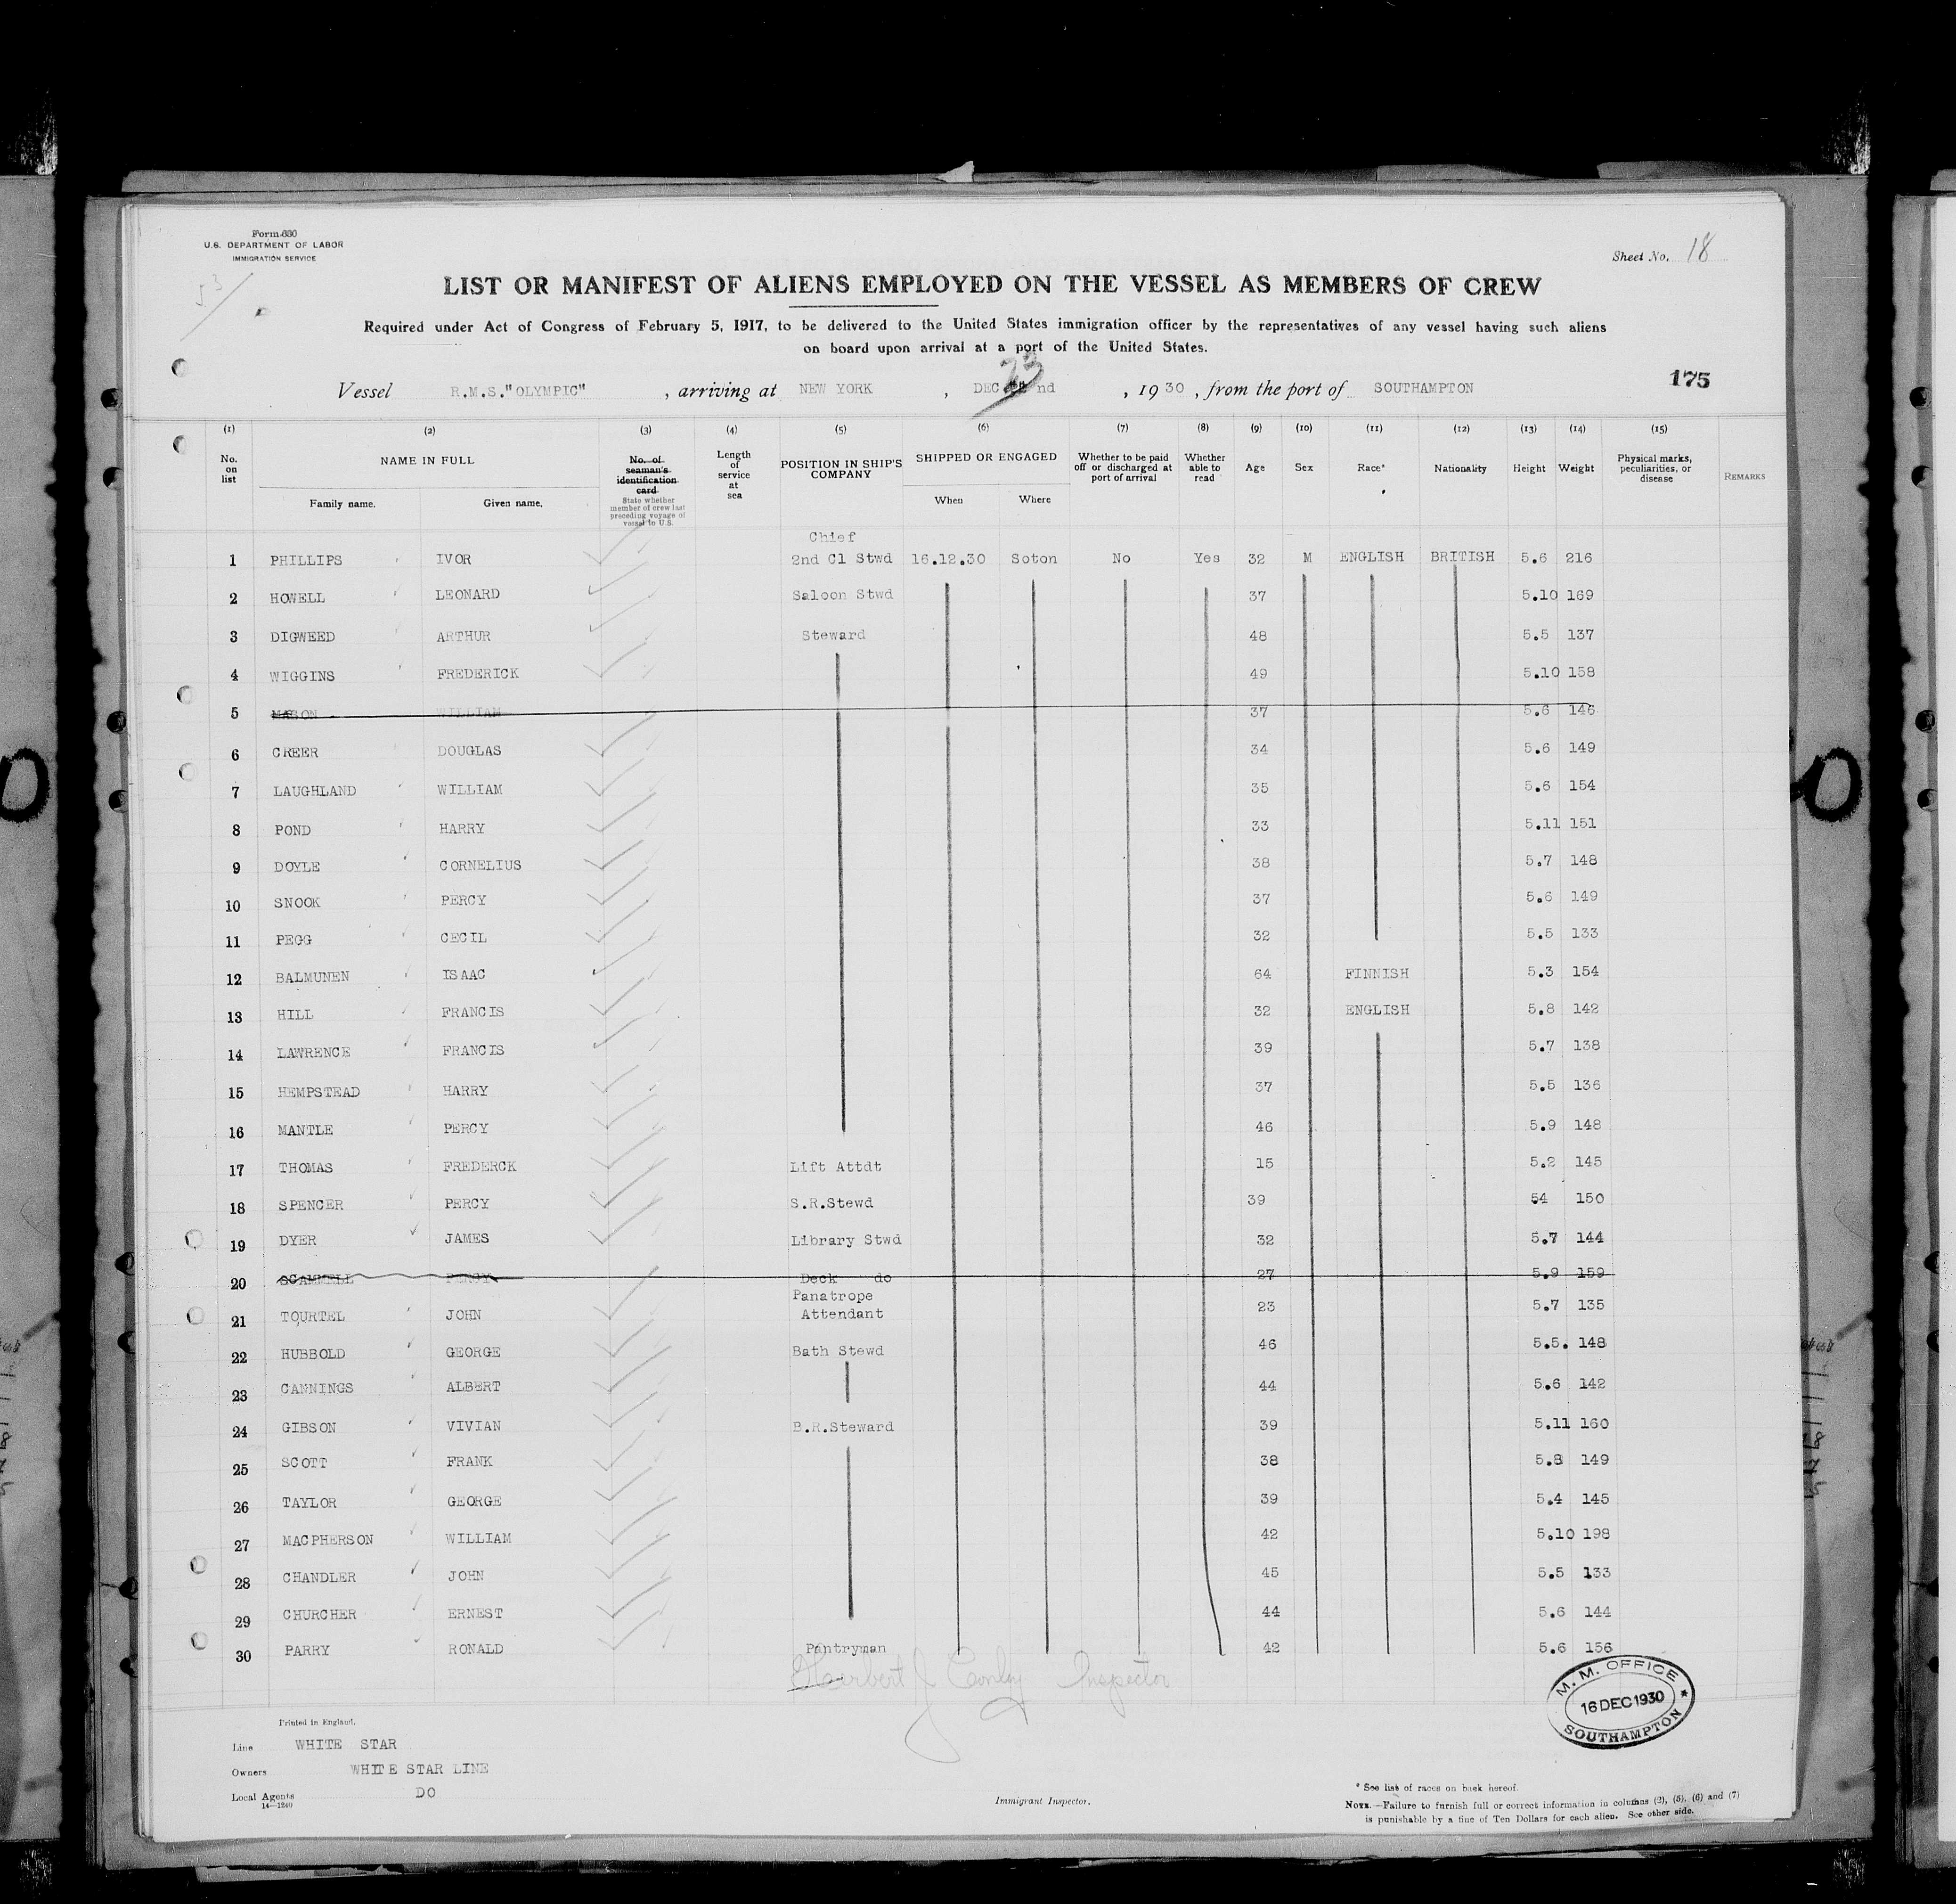 Form 680
U.S. DEPARTMENT OF LABOR
IMMIGRATION SERVICE
53
Sheet No. 18
LIST OR MANIFEST OF ALIENS EMPLOYED ON THE VESSEL AS MEMBERS OF CREW
Required under Act of Congress of February 5, 1917, to be delivered to the United States immigration officer by the representatives of any vessel having such aliens
on board upon arrival at a port of the United States.
Vessel R.M.S."OLYMPIC" , arriving at NEW YORK , DEC 23 nd , 1930 , from the port of SOUTHAMPTON
175
(1) (2) (3) (4) (5) (6) (7) (8) (9) (10) (11) (12) (13) (14) (15)
No. on list
NAME IN FULL
Family name. Given name.
No. of seaman's identification card
State whether member of crew last preceding voyage of vessel to U.S.
Length of service at sea
POSITION IN SHIP'S COMPANY
SHIPPED OR ENGAGED
When Where
Whether to be paid off or discharged at port of arrival
Whether able to read
Age Sex Race* Nationality Height Weight
Physical marks, peculiarities, or disease
REMARKS
Chief
1 PHILLIPS IVOR 2nd Cl Stwd 16.12.30 Soton No Yes 32 M ENGLISH BRITISH 5.6 216
2 HOWELL LEONARD Saloon Stwd 37 5.10 169
3 DIGWEED ARTHUR Steward 48 5.5 137
4 WIGGINS FREDERICK 49 5.10 158
5 MASON WILLIAM 37 5.6 146
6 CREER DOUGLAS 34 5.6 149
7 LAUGHLAND WILLIAM 35 5.6 154
8 POND HARRY 33 5.11 151
9 DOYLE CORNELIUS 38 5.7 148
10 SNOOK PERCY 37 5.6 149
11 PEGG CECIL 32 5.5 133
12 BALMUNEN ISAAC 64 FINNISH 5.3 154
13 HILL FRANCIS 32 ENGLISH 5.8 142
14 LAWRENCE FRANCIS 39 5.7 138
15 HEMPSTEAD HARRY 37 5.5 136
16 MANTLE PERCY 46 5.9 148
17 THOMAS FREDERCK Lift Attdt 15 5.2 145
18 SPENCER PERCY S.R.Stewd 39 54 150
19 DYER JAMES Library Stwd 32 5.7 144
20 SCAMMELL PERCY Deck do 27 5.9 159
Panatrope
21 TOURTEL JOHN Attendant 23 5.7 135
22 HUBBOLD GEORGE Bath Stewd 46 5.5. 148
23 CANNINGS ALBERT 44 5.6 142
24 GIBSON VIVIAN B.R.Steward 39 5.11 160
25 SCOTT FRANK 38 5.8 149
26 TAYLOR GEORGE 39 5.4 145
27 MACPHERSON WILLIAM 42 5.10 198
28 CHANDLER JOHN 45 5.5 133
29 CHURCHER ERNEST 44 5.6 144
30 PARRY RONALD Pantryman 42 5.6 156
Herbert J Conley Inspector
M. M. OFFICE
16 DEC 1930
SOUTHAMPTON
Printed in England.
Line WHITE STAR
Owners WHITE STAR LINE
Local Agents DO
14—1240
Immigrant Inspector.
* See list of races on back hereof.
NOTE.—Failure to furnish full or correct information in columns (2), (5), (6) and (7)
is punishable by a fine of Ten Dollars for each alien. See other side.